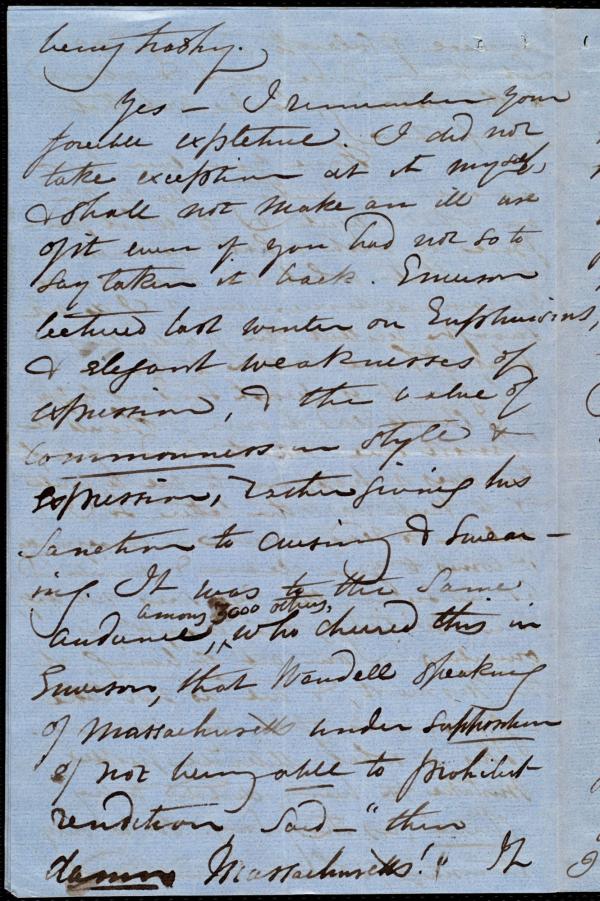 being trashy.
Yes – I remember your
forcible expletive. I did not
take exception at it myself,
& shall not make an ill use
of it even if you had not so to
say taken it back. Emerson
lectured last winter on Euphuisms,
& elegant weaknesses of
expression, & the value of
commonness in style &
expression, rather giving his
sanction to cursing & swear-
ing. It was to the same
among 3000 others,
audience, who cheered this in
Emerson, that Wendell speaking
of Massachusetts under supposition
of not being able to prohibit
rendition, said – "then
damn Massachusetts!" It